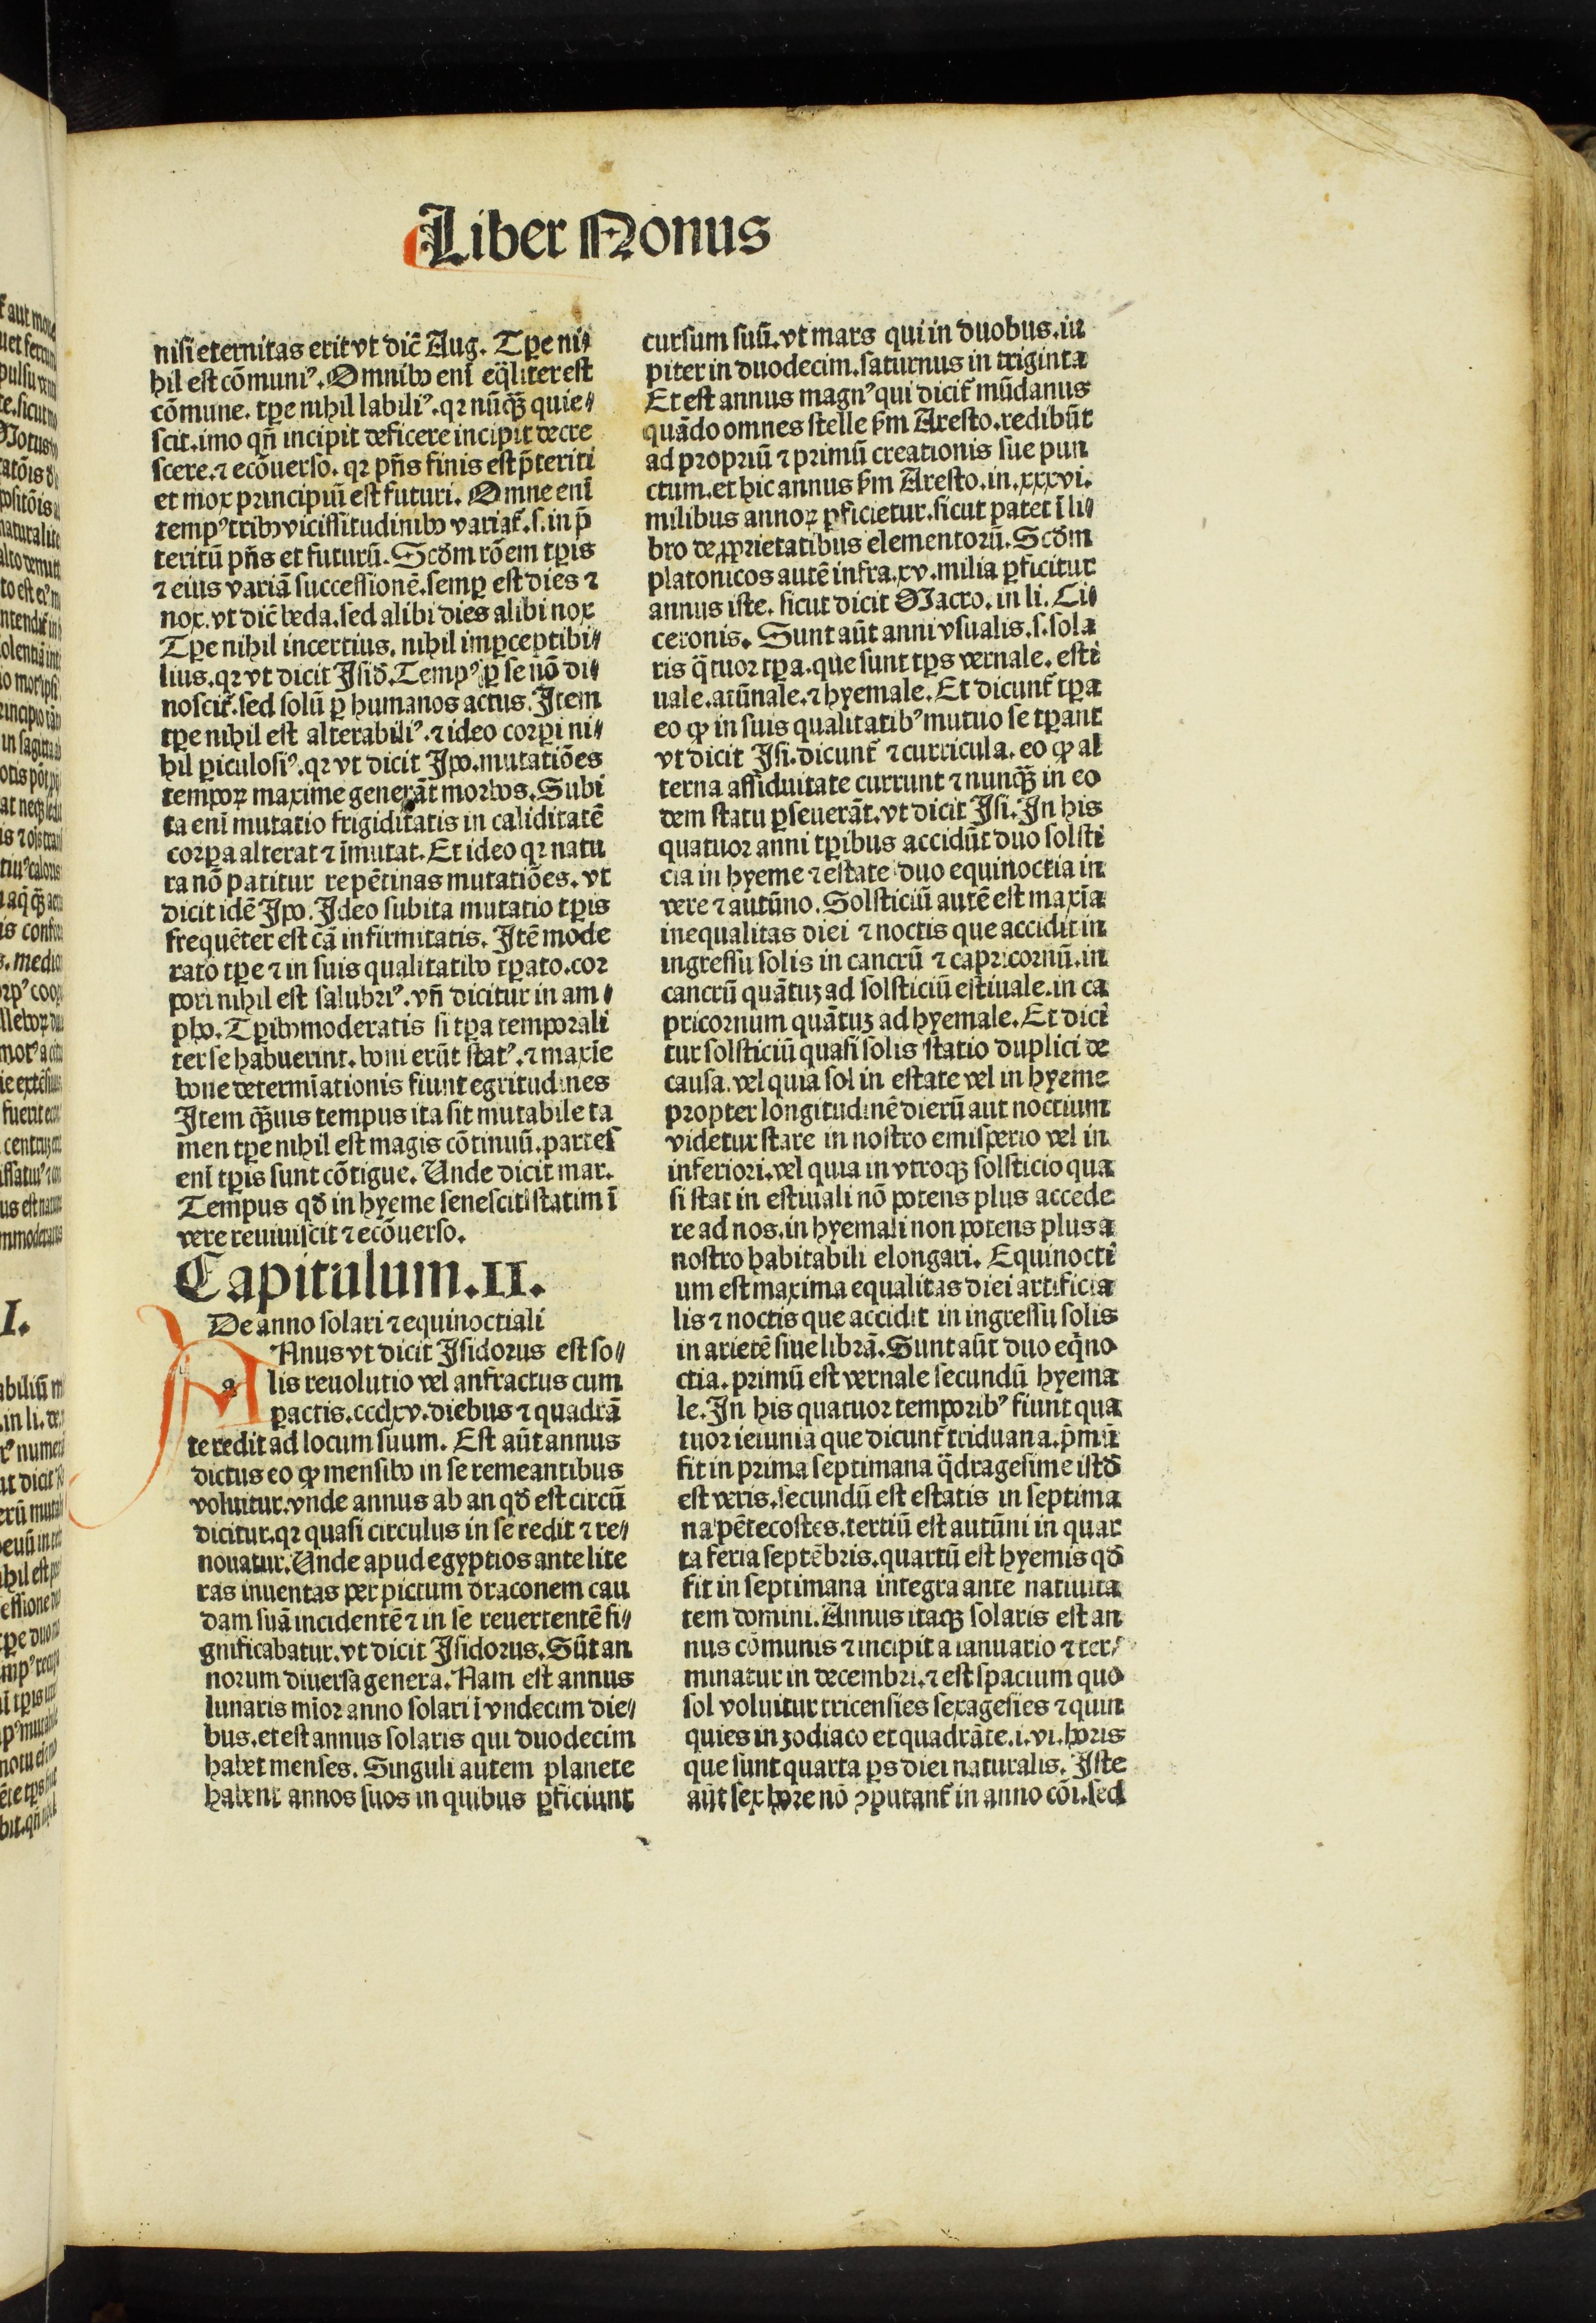 Liber Nonus
nisi eternitas erit vt dic̄ Aug. Tꝑe ni⸗
hil est cōmuniꝰ. Omnibꝰ enī eq̄liter est
cōmune. tꝑe nihil labiliꝰ. qꝛ nūqꝫ quie⸗
scit. imo qn̄ incipit deficere incipit decre
scere. ⁊ ecōuerso. qꝛ pn̄s finis est p̄teriti
et mox principiū est futuri. Omne enī
tempꝰ tribꝰ vicissitudinibꝰ variat᷑. s. in p̄
teritū pn̄s et futurū. Scd̄m rōem tꝑis
⁊ eius variā successionē. semꝑ est dies ⁊
nox. vt dic̄ beda. sed alibi dies alibi nox
Tꝑe nihil incertius. nihil imꝑceptibi⸗
lius. qꝛ vt dicit Isid̄. Tempꝰ ꝑ se nō di⸗
noscit᷑. sed solū ꝑ humanos actus. Item
tꝑe nihil est alterabiliꝰ. ⁊ ideo corꝑi ni⸗
hil ꝑiculosiꝰ. qꝛ vt dicit Ipo. mutatiōes
tempoꝝ maxime generāt morbos. Subi
ta enī mutatio frigiditatis in caliditatē
corꝑa alterat ⁊ īmutat. Et ideo qꝛ natu
ra nō patitur repētinas mutatiōes. vt
dicit idē Ipo. Ideo subita mutatio tꝑis
frequēter est cā infirmitatis. Itē mode
rato tꝑe ⁊ in suis qualitatibꝰ tꝑato. cor
pori nihil est salubriꝰ. vn̄ dicitur in am⸗
phꝰ. Tꝑibꝰ moderatis si tꝑa temporali
ter se habuerint. boni erūt statꝰ. ⁊ maxīe
bone determīationis fiunt egritudines
Item qꝫuis tempus ita sit mutabile ta
men tꝑe nihil est magis cōtinuū. partes
enī tꝑis sunt cōtigue. Unde dicit mar.
Tempus qd̄ in hyeme senescit statim ī
vere reuiuiscit ⁊ ecōuerso.
Capitulum. II.
De anno solari ⁊ equinoctiali
a
Nnus vt dicit Isidorus est so⸗
lis reuolutio vel anfractus cum
ꝑactis. ccclxv. diebus ⁊ quadrā
te redit ad locum suum. Est aūt annus
dictus eo ꝙ mensibꝰ in se remeantibus
voluitur. vnde annus ab an qd̄ est circū
dicitur. qꝛ quasi circulus in se redit ⁊ re⸗
nouatur. Unde apud egyptios ante lite
ras inuentas per pictum draconem cau
dam suā incidentē ⁊ in se reuertentē si⸗
gnificabatur. vt dicit Isidorus. Sūt an
norum diuersa genera. Nam est annus
lunaris mior anno solari ī vndecim die⸗
bus. et est annus solaris qui duodecim
habet menses. Singuli autem planete
habent annos suos in quibus ꝑficiunt
cursum suū. vt mars qui in duobus. iu
piter in duodecim. saturnus in triginta
Et est annus magnꝰ qui dicit᷑ mūdanus
quādo omnes stelle ẜm Aresto. redibūt
ad propriū ⁊ primū creationis sue pun
ctum. et hic annus ẜm Aresto. in. xxxvi.
milibus annoꝝ ꝑficietur. sicut patet ī li⸗
bro de ꝓprietatibus elementorū. Scd̄m
platonicos autē infra. xv. milia ꝑficitur
annus iste. sicut dicit Macro. in li. Ci⸗
ceronis. Sunt aūt anni vsualis. s. sola
ris q̄tuor tꝑa. que sunt tꝑs vernale. esti
uale. atūnale. ⁊ hyemale. Et dicunt᷑ tꝑa
eo ꝙ in suis qualitatibꝰ mutuo se tꝑant
vt dicit Isi. dicunt᷑ ⁊ curricula. eo ꝙ al
terna assiduitate currunt ⁊ nunqꝫ in eo
dem statu ꝑseuerāt. vt dicit Isi. In his
quatuor anni tꝑibus accidūt duo solsti
cia in hyeme ⁊ estate duo equinoctia in
vere ⁊ autūno. Solsticiū autē est maxīa
inequalitas diei ⁊ noctis que accidit in
ingressu solis in cancrū ⁊ capricornū. in
cancrū quātuꝫ ad solsticiū estiuale. in ca
pricornum quātuꝫ ad hyemale. Et dici
tur solsticiū quasi solis statio duplici de
causa. vel quia sol in estate vel in hyeme
propter longitudinē dierū aut noctium
videtur stare in nostro emisperio vel in
inferiori. vel quia in vtroqꝫ solsticio qua
si stat in estiuali nō potens plus accede
re ad nos. in hyemali non potens plus a
nostro habitabili elongari. Equinocti
um est maxima equalitas diei artificia
lis ⁊ noctis que accidit in ingressu solis
in arietē siue librā. Sunt aūt duo eq̄no
ctia. primū est vernale secundū hyema
le. In his quatuor temporibꝰ fiunt qua
tuor ieiunia que dicunt᷑ triduana. p̄mū
fit in prima septimana q̄dragesime istd̄
est veris. secundū est estatis in septima
na pētecostes. tertiū est autūni in quar
ta feria septēbris. quartū est hyemis qd̄
fit in septimana integra ante natiuita
tem domini. Annus itaqꝫ solaris est an
nus cōmunis ⁊ incipit a ianuario ⁊ ter⸗
minatur in decembri. ⁊ est spacium quo
sol voluitur tricensies sexagesies ⁊ quin
quies in zodiaco et quadrāte. i. vi. horis
que sunt quarta ꝑs diei naturalis. Iste
aūt sex hore nō ꝯputant᷑ in anno cōi. sed